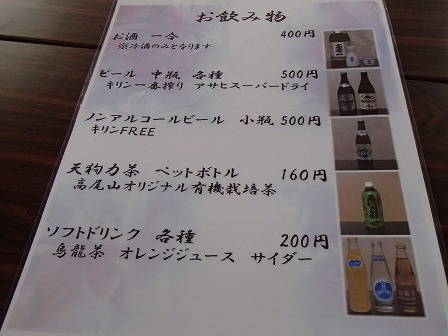 お飲み物
お酒 一合 400円
※冷酒のみとなります
ビール 中瓶 各種 500円
キリン一番搾り アサヒスーパードライ
ノンアルコールビール 小瓶 500円
キリンFREE
天狗力茶 ペットボトル 160円
高尾山オリジナル有機栽培茶
ソフトドリンク 各種 200円
烏龍茶 オレンジジュース サイダー